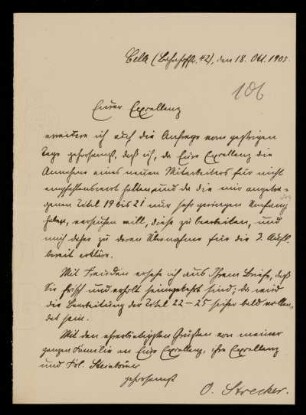 Celle (Bahnhofstr. 42), den 18. Okt. 1907
106
Euer Exzellenz
erwidere ich auf die Anfrage vom gestrigen
Tage gehorsamst, daß ich, da Eure Exzellenz die
Annahme eines neuen Mitarbeiters für nicht
empfehlenswert halten und da die mir angebo-
tenen Titel 19 bis 21 nur sehr geringen Umfang
haben, versuchen will, diese zu bearbeiten, und
mich daher zu deren Übernahme für die 2. Aufl.
bereit erkläre.
Mit Freuden ersehe ich aus Ihrem Briefe, daß
Sie frisch und erholt heimgekehrt sind; da wird
die Bearbeitung der Titel 22–25 sicher bald vollen-
det sein.
Mit den ehrerbietigsten Grüßen von meiner
ganzen Familie an Eure Exzellenz, Ihre Exzellenz
und Frl.
gehorsamst
O. Strecker.